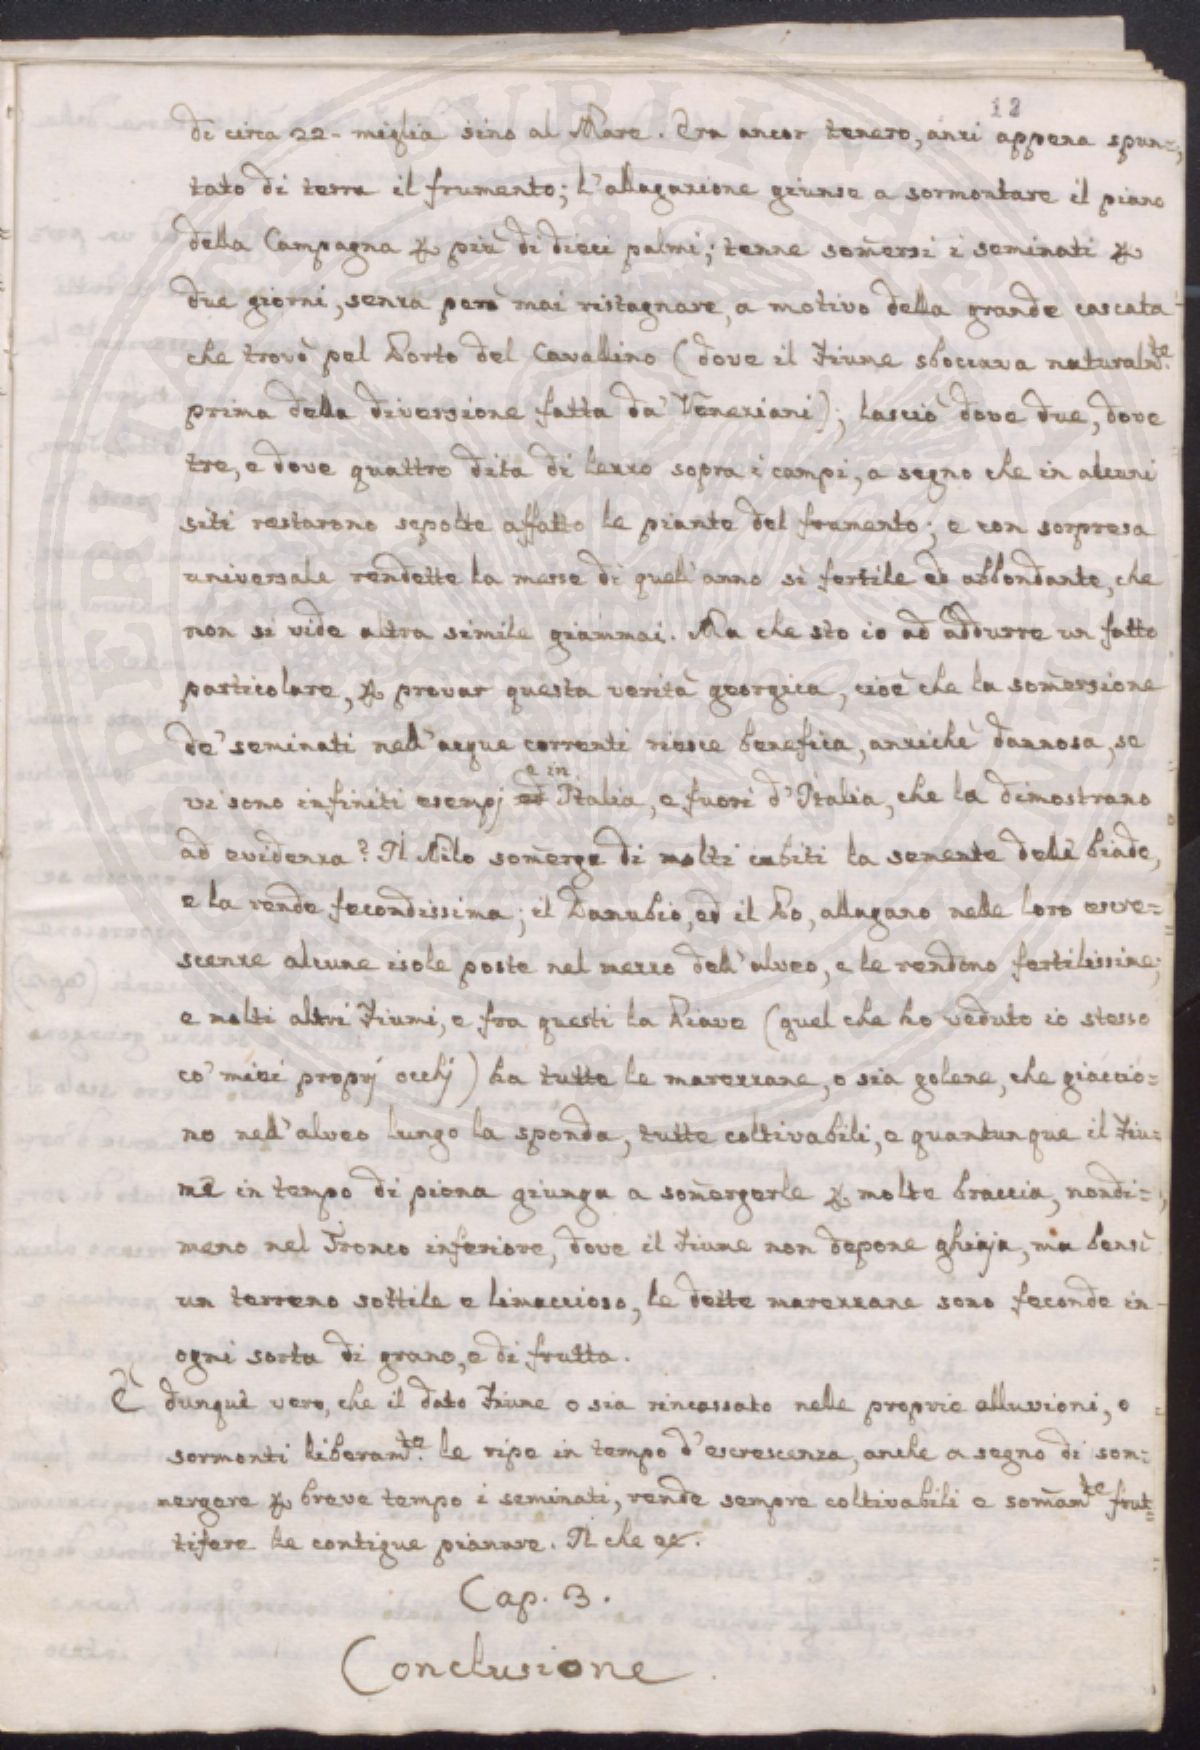 12
di circa 22- miglia sino al Mare. Era ancor tenero, anzi appena spun=
tato di terra il frumento; l'allagazione giunse a sormontare il piano
della Campagna p più di dieci palmi; tenne som̃ersi i seminati p
due giorni, senza però mai ristagnare, a motivo della grande cascata
che trovò pel Porto del Cavallino (dove il Fiume sboccava naturalm.te
prima della diversione fatta da' Veneziani); lasciò dove due, dove
tre, e dove quattro dita di lezzo sopra i campi, a segno che in alcuni
siti restarono sepolte affatto le piante del frumento; e con sorpresa
universale rendette la messe di quell'anno sì fertile ed abbondante, che
non si vide altra simile giammai. Ma che sto io ad addurre un fatto
particolare, p provar questa verità georgica, cioè che la som̃ersione
de' seminati nell'acque correnti riesce benefica, anzichè dannosa, se
e in
vi sono infiniti esempj ed Italia, e fuori d'Italia, che la dimostrano
ad evidenza? Il Nilo som̃erge di molti cubiti la semente delle biade,
e la rende fecondissima; il Danubio, ed il Po, allagano nelle loro escre=
scenze alcune isole poste nel mezzo dell'alveo, e le rendono fertilissime;
e molti altri Fiumi, e fra questi la Piave (quel che ho veduto io stesso
co' miei proprj occhj) ha tutte le marezzane, o sia golene, che giaccio=
no nell'alveo lungo la sponda, tutte coltivabili, e quantunque il Fiu=
me in tempo di piena giunga a som̃ergerle p molte braccia, nondi=
meno nel Tronco inferiore, dove il Fiume non depone ghiaja, ma bensì
un terreno sottile e limaccioso, le dette marezzane sono feconde in
ogni sorta di grano, e di frutta.
È dunque vero, che il dato Fiume o sia rincassato nelle proprie alluvioni, o
sormonti liberam.te le ripe in tempo d'escrescenza, anche a segno di som=
mergere p breve tempo i seminati, rende sempre coltivabili e som̃am.te frut=
tifere le contigue pianure. Il che &c.
Cap. 3.
Conclusione.